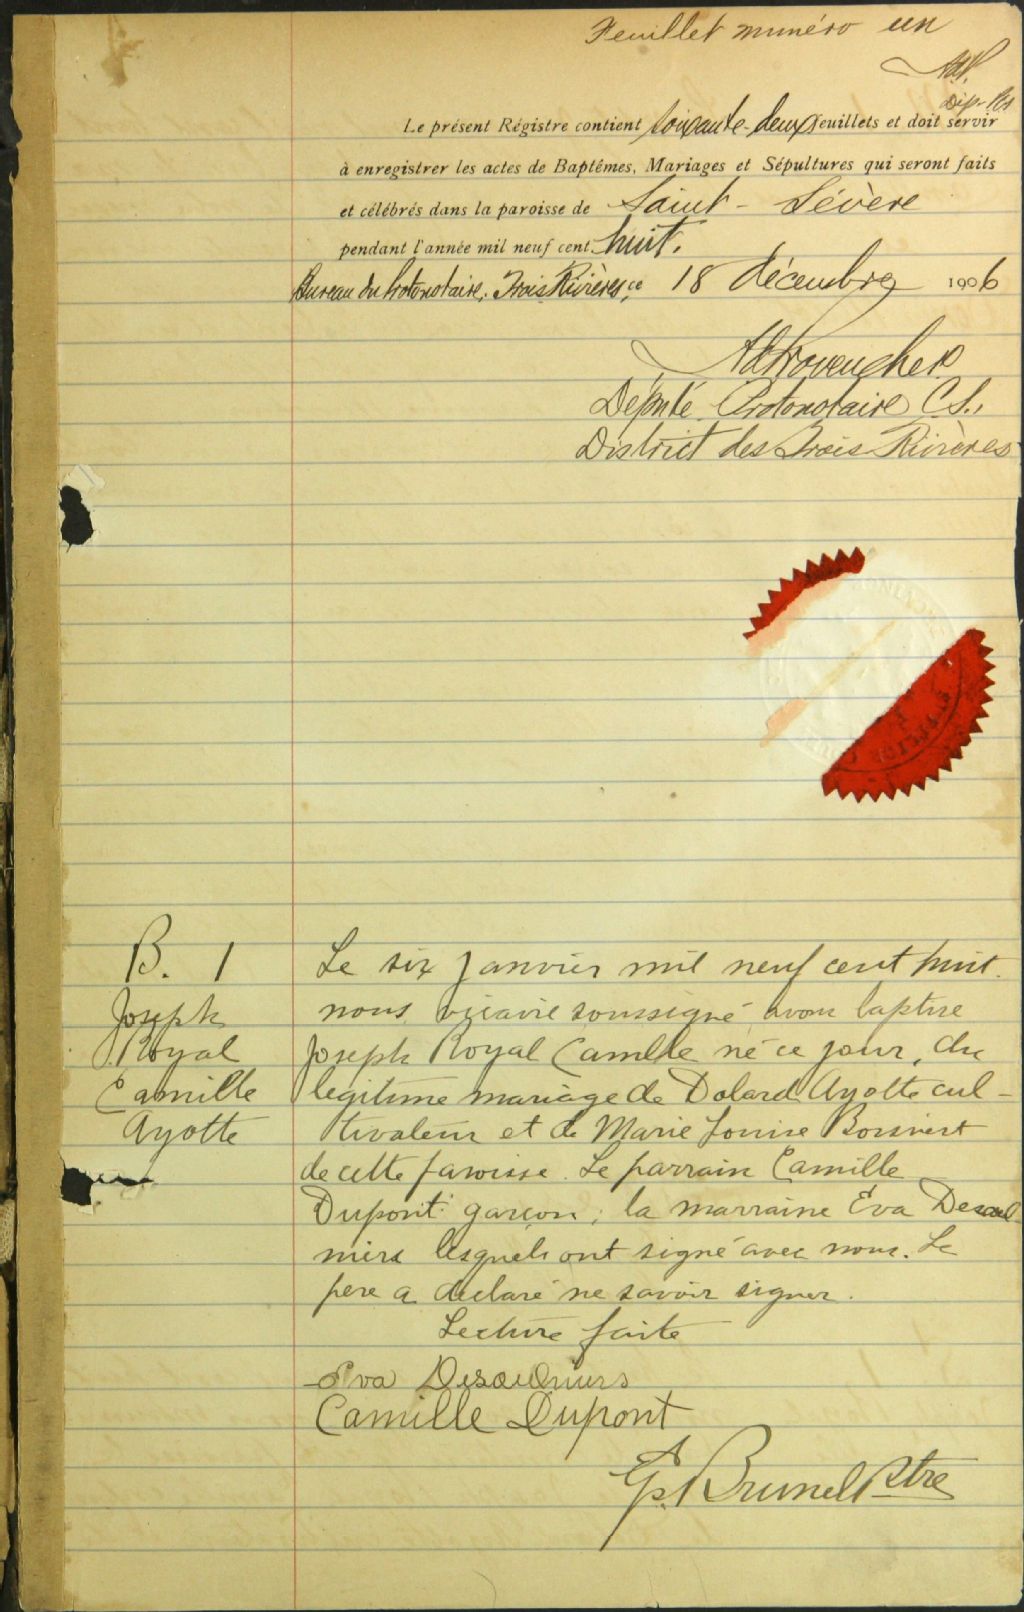 Feuillet numéro un
AdP.
Dép. P.
Le présent Régistre contient soixante-deux feuillets et doit servir
à enregistrer les actes de Baptêmes, Mariages et Sépultures qui seront faits
et célébrés dans la paroisse de Saint-Sévère
pendant l'année mil neuf cent huit.
Bureau du Protonotaire, Trois Rivières, ce 18 décembre 1906
Ad Provencher
Député Protonotaire C.S.,
District des Trois Rivières
B. 1
Joseph
Royal
Camille
Ayotte
Le six janvier mil neuf cent huit
nous vicaire soussigné avons baptise
Joseph Royal Camille né ce jour, du
legitime mariage de Dolard Ayotte cul-
tivateur et de Marie Louise Boisvert
de cette paroisse. Le parrain Camille
Dupont garçon; la marraine Éva Desaul-
niers lesquels ont signé avec nous. Le
pere a declaré ne savoir signer.
Lecture faite
Eva Desaulniers
Camille Dupont
Brunel Ptre